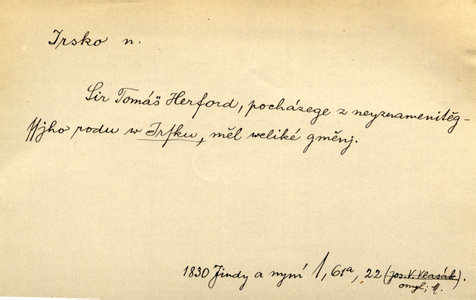 Irsko n.
Sir Tomáš Herford, pocházege z neyznamenitěg-
ſſjho rodu w Irſku, měl weliké gměnj.
1830 Jindy a nyní 1, 61a, 22 (Jos. V. Vlasák).
omyl;